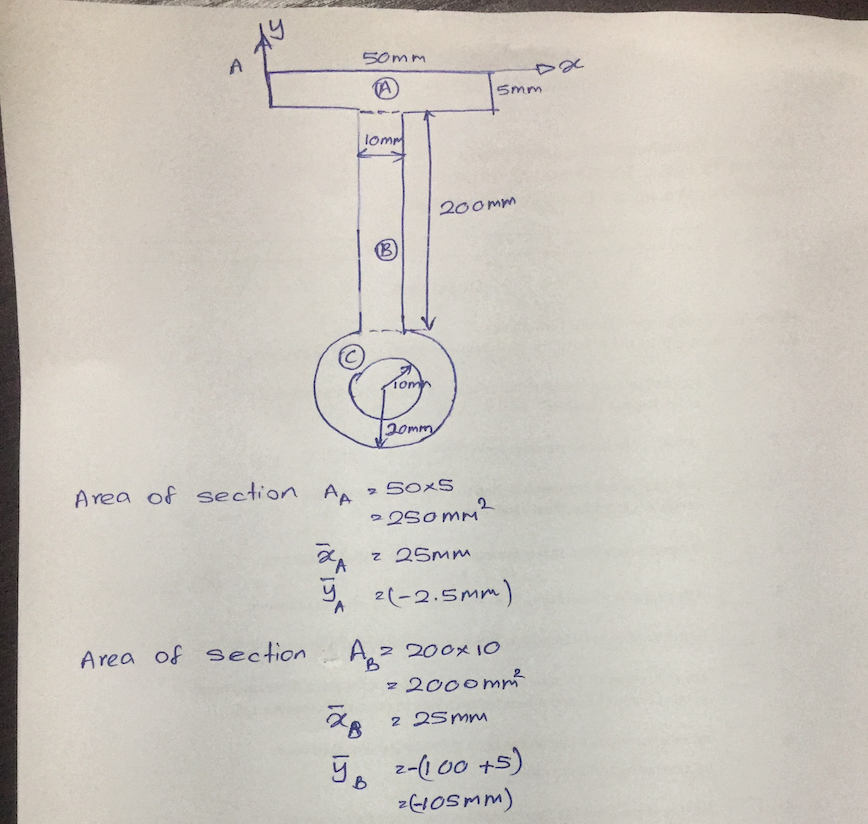 y
A
50mm
x
Ⓐ
5mm
10mm
200mm
Ⓑ
Ⓒ
10mm
20mm
Area of section A_A = 50×5
= 250mm²
x̄_A = 25mm
ȳ_A =(-2.5mm)
Area of section A_B = 200×10
= 2000mm²
x̄_B = 25mm
ȳ_B =-(100 +5)
=(-105mm)